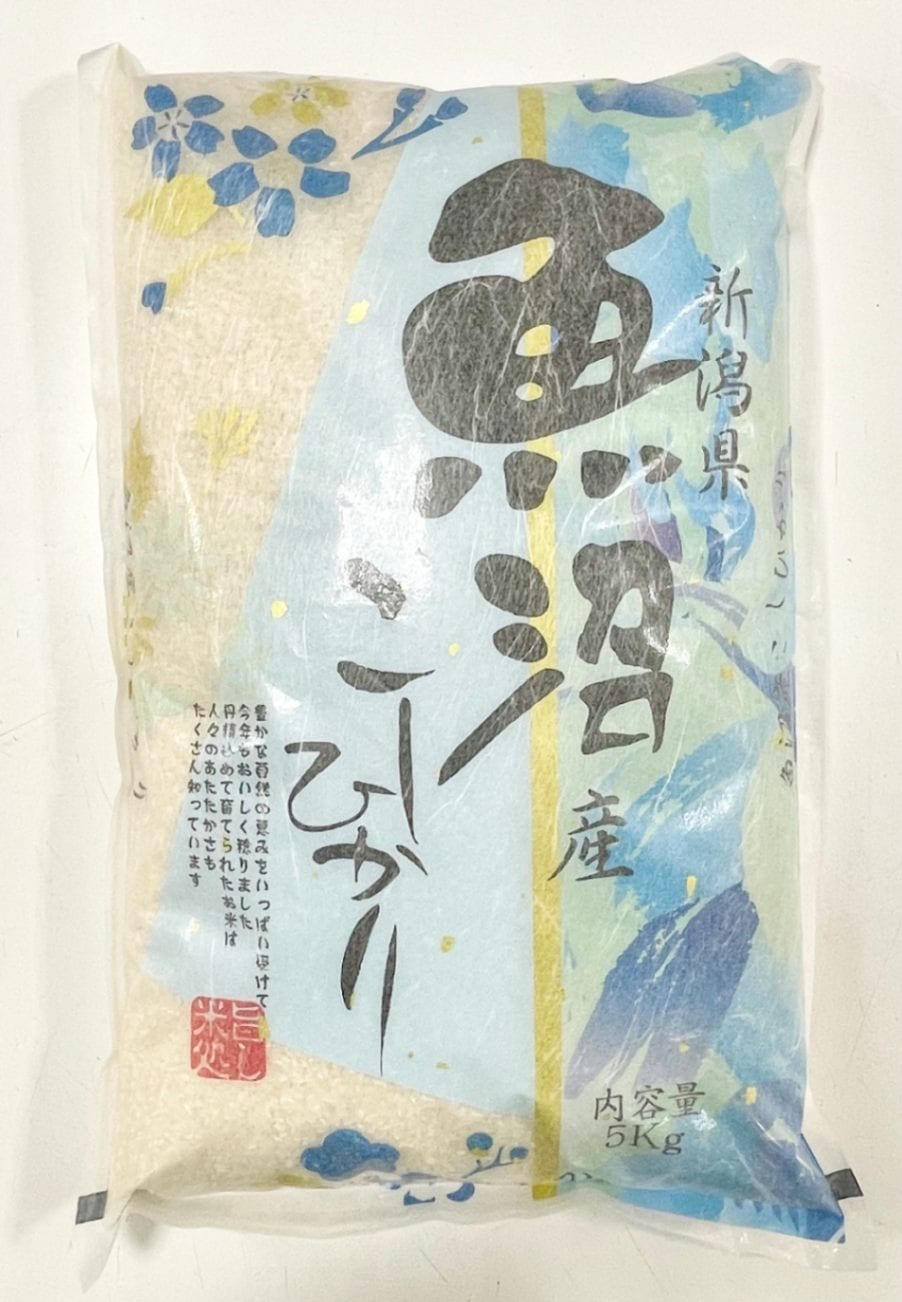 新潟県
魚沼
産
こしひかり
豊かな自然の恵みをいっぱい受けて
今年もおいしく稔りました
丹精込めて育てられたお米は
人々のあたたかさも
たくさん知っています
旨し
米処
内容量
5Kg